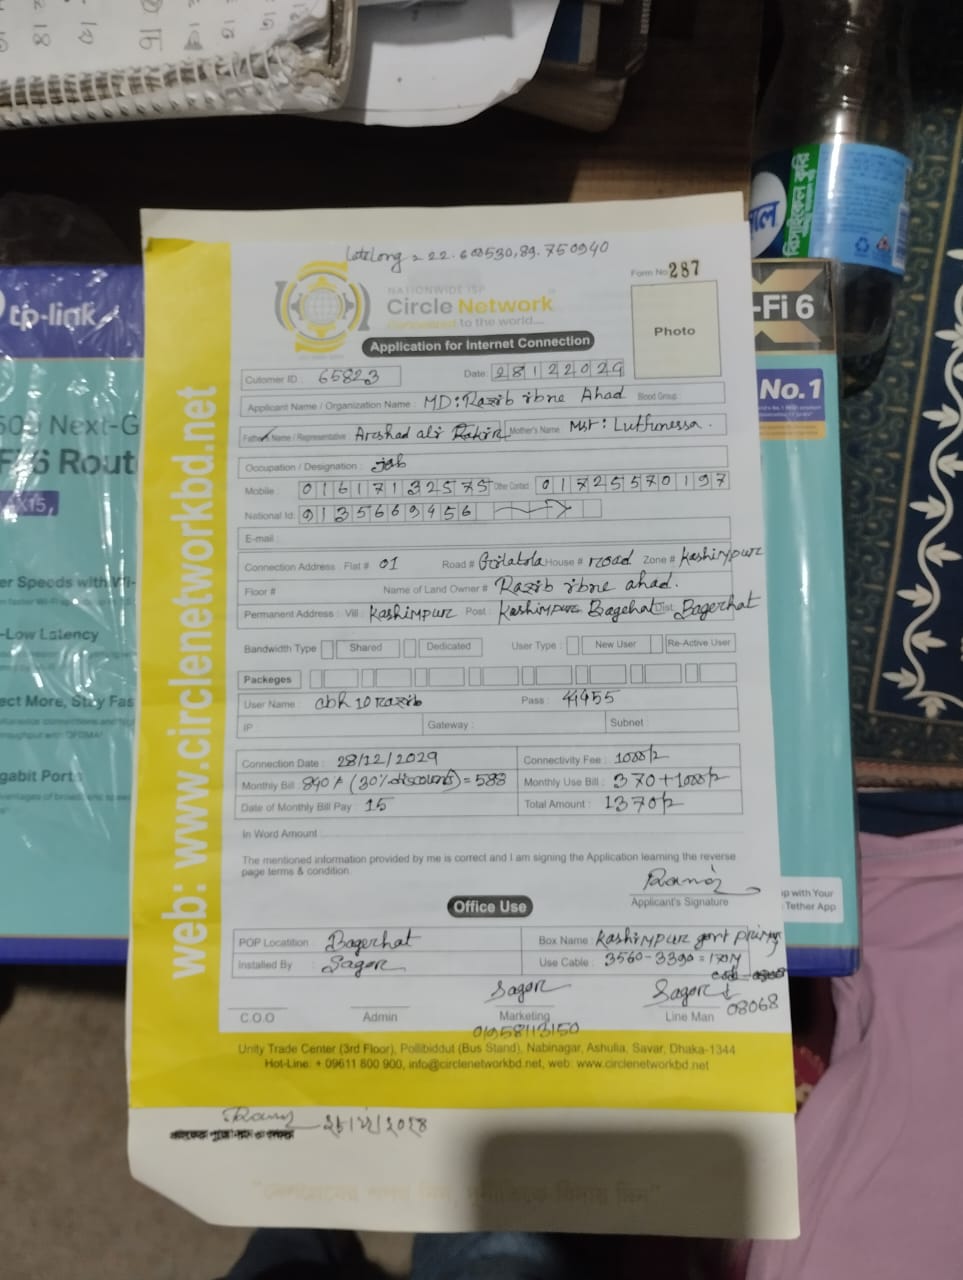 Latelong = 22.608530,89.750940
NATIONWIDE ISP
Circle Network
Connected to the world....
Form No 287
Photo
Application for Internet Connection
Cutomer ID : 65823
Date: 28122029
Applicant Name / Organization Name : MD: Razib ibne Ahad Blood Group :
Name / Representative : Arshad ali Mother's Name Mst: Luthunessa.
Occupation / Designation : job
Mobile : 01617132575 Other Contact : 01725570197
National Id: 9135669456
E-mail :
Connection Address : Flat # 01 Road # House # road Zone # Kashimpur
Floor # Name of Land Owner # Razib ibne ahad.
Permanent Address : Vill : Kashimpur Post : Kashimpur Bagehat Dist. Bagerhat
Bandwidth Type Shared Dedicated User Type : New User Re-Active User
Packeges
User Name : abh10razib Pass : 44455
IP Gateway : Subnet :
Connection Date : 28/12/2029 Connectivity Fee :
Monthly Bill : 840/- (30% discount) = 588 Monthly Use Bill :
Date of Monthly Bill Pay : 15 Total Amount :
In Word Amount
The mentioned information provided by me is correct and I am signing the Application learning the reverse
page terms & condition.
Applicant's Signature
Office Use
POP Locatition : Bagerhat Box Name : Kashimpur govt
Installed By : Sagor Use Cable : 3560-3390 = 170M
Sagor Sagor
08068
C.O.O Admin Marketing Line Man
01958113150
Unity Trade Center (3rd Floor), Pollibiddut (Bus Stand), Nabinagar, Ashulia, Savar, Dhaka-1344
Hot-Line: + 09611 800 900, info@circlenetworkbd.net, web: www.circlenetworkbd.net
web: www.circlenetworkbd.net
tp-link
Next-G
-Low Latency
-Fi 6
No.1
Tether App